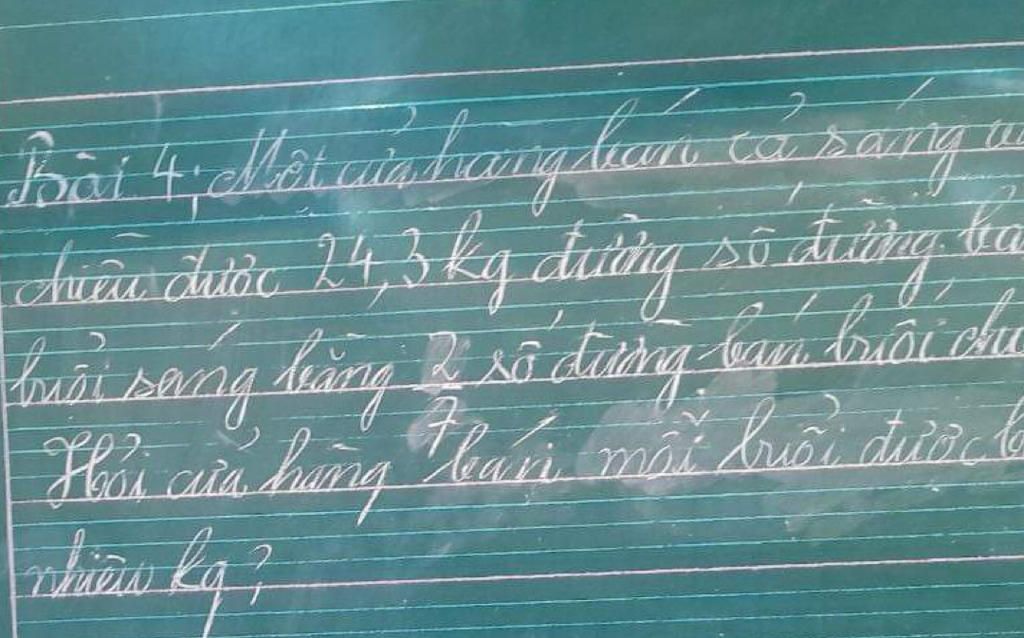 Bài 4: Một cửa hàng bán cả sáng
chiều được 24,3 kg đường số đường
buổi sáng bằng 2/7 số đường bán buổi
Hỏi cửa hàng bán mỗi buổi được
nhiêu kg?